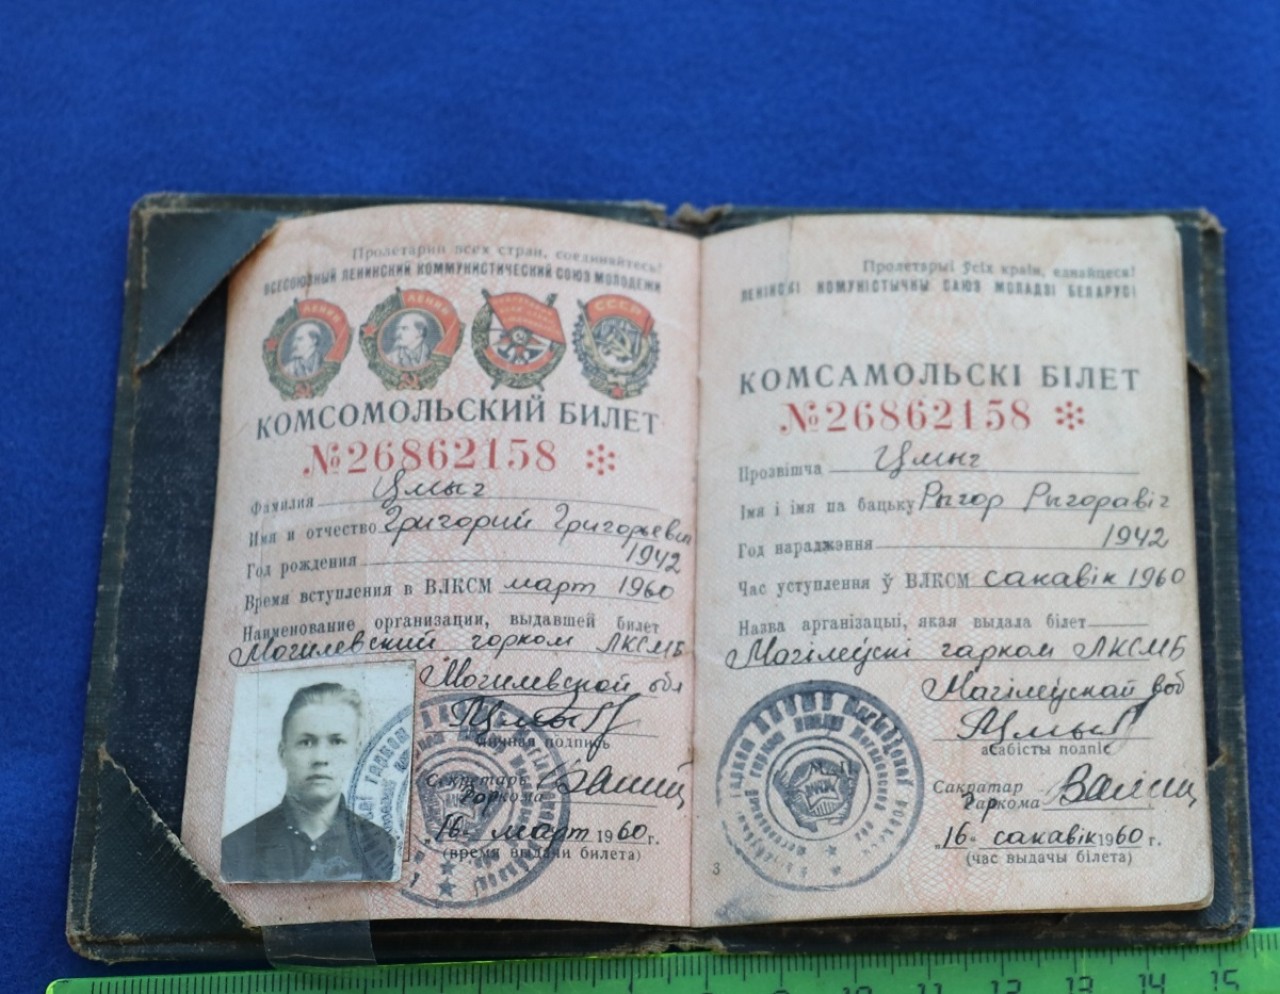 Пролетарии всех стран, соединяйтесь!
ВСЕСОЮЗНЫЙ ЛЕНИНСКИЙ КОММУНИСТИЧЕСКИЙ СОЮЗ МОЛОДЕЖИ
ЛЕНИН
ЛЕНИН
СССР
КОМСОМОЛЬСКИЙ БИЛЕТ
№26862158
Фамилия Цмыг
Имя и отчество Григорий Григорьевич
Год рождения 1942
Время вступления в ВЛКСМ март 1960
Наименование организации, выдавшей билет
Могилевский горком ЛКСМБ
Могилевской обл
Личная подпись
Секретарь
Горкома
"16" март 1960 г.
(время выдачи билета)
Пролетарыі ўсіх краін, еднайцеся!
ЛЕНІНСКІ КОМУНІСТЫЧНЫ САЮЗ МОЛАДЗІ БЕЛАРУСІ
КОМСАМОЛЬСКІ БІЛЕТ
№26862158
Прозвішча Цмыг
Імя і імя па бацьку Рыгор Рыгоравіч
Год нараджэння 1942
Час уступлення ў ВЛКСМ сакавік 1960
Назва арганізацыі, якая выдала білет
Магілеўскі гарком ЛКСМБ
Магілеўскай воб
асабісты подпіс
Сакратар
Гаркома
"16" сакавік 1960 г.
(час выдачы білета)
3
10 11 12 13 14 15